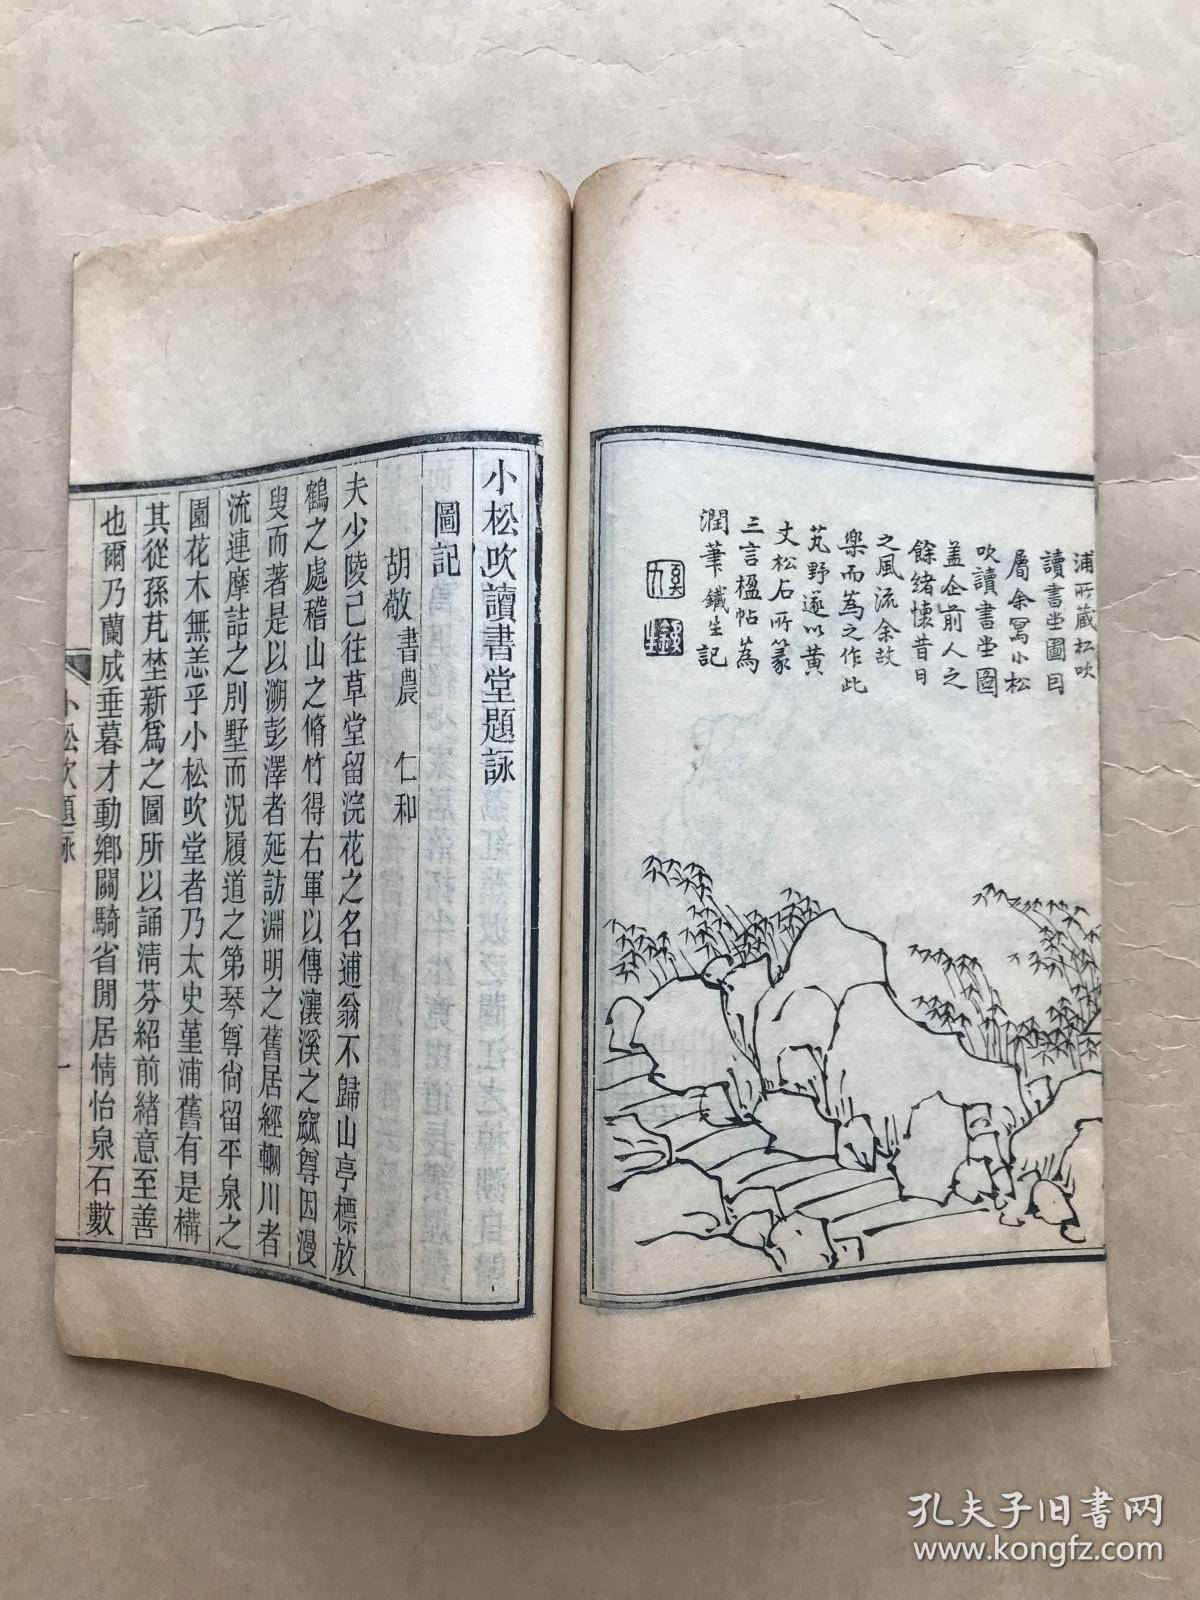 浦所藏松吹
讀書堂圖因
屬余寫小松
吹讀書堂圖
盖企前人之
餘緒懷昔日
之風流余故
樂而為之作此
芃野遂以黄
丈松石所篆
三言楹帖為
潤筆鐵生記
小松吹讀書堂題詠
圖記
胡敬 書農 仁和
夫少陵已往草堂留浣花之名逋翁不歸山亭標放
鶴之處稽山之脩竹得右軍以傳瀼溪之窳尊因漫
叟而著是以溯彭澤者延訪淵明之舊居經輞川者
流連摩詰之別墅而況履道之第琴尊尙留平泉之
園花木無恙乎小松吹堂者乃太史堇浦舊有是構
其從孫芃埜新爲之圖所以誦淸芬紹前緒意至善
也爾乃蘭成垂暮才動鄉關騎省閒居情怡泉石數
小松吹題詠
一
孔夫子旧书网
www.kongfz.com